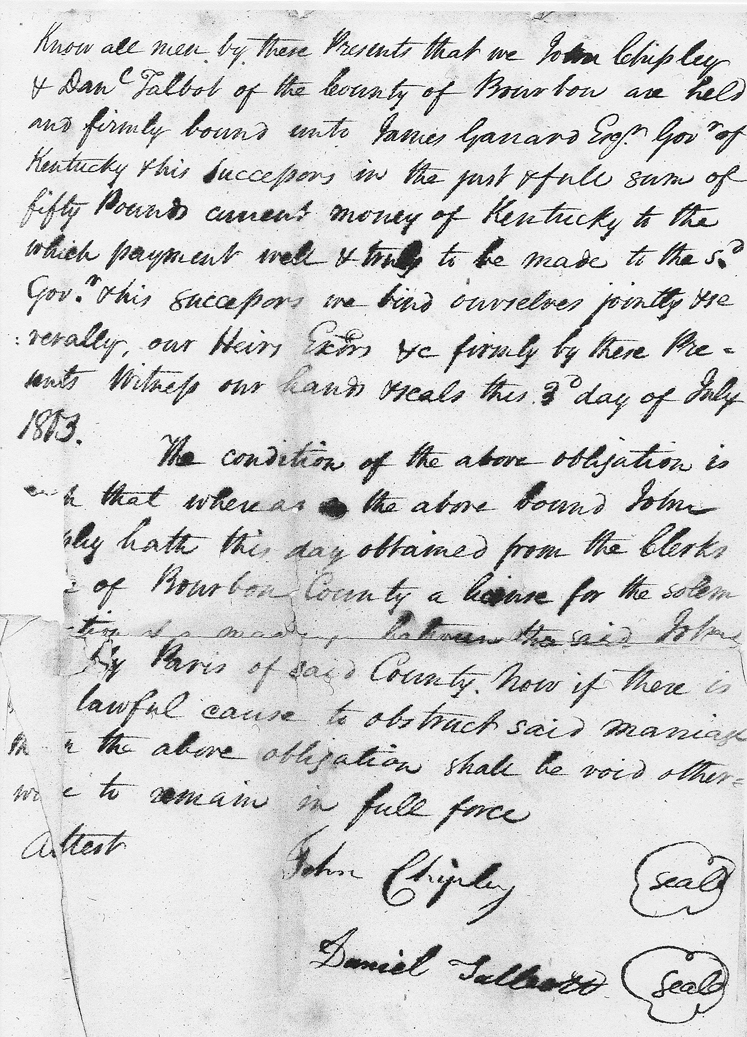 Know all men by these Presents that we John Chipley
& Danl Talbot of the County of Bourbon are held
and firmly bound unto James Garrard Esqr. Govr of
Kentucky & his Successors in the just & full sum of
fifty Pounds current money of Kentucky to the
which payment well & truly to be made to the sd
Govr. & his successors we bind ourselves jointly & se
verally, our Heirs Exors &c firmly by these Pre=
sents Witness our hands & seals this 3d day of July
1803.
The condition of the above obligation is
that whereas the above bound John
pley hath this day obtained from the Clerks
e of Bourbon County a license for the solem
tion between the said John
Paris of said County. Now if there is
lawful cause to obstruct said marriage
the above obligation shall be void other=
to remain in full force
Attest
John Chipley seal
Daniel Talbott seal